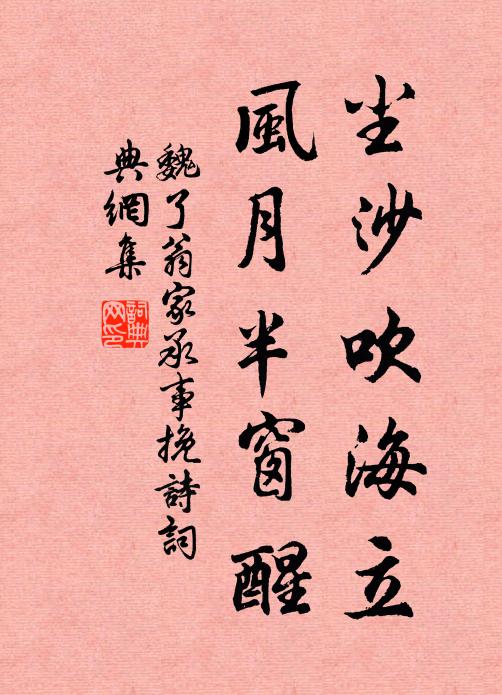 尘沙吹海立
風月半窗醒
魏了翁家承事挽詩詞
典網集
詞典网印